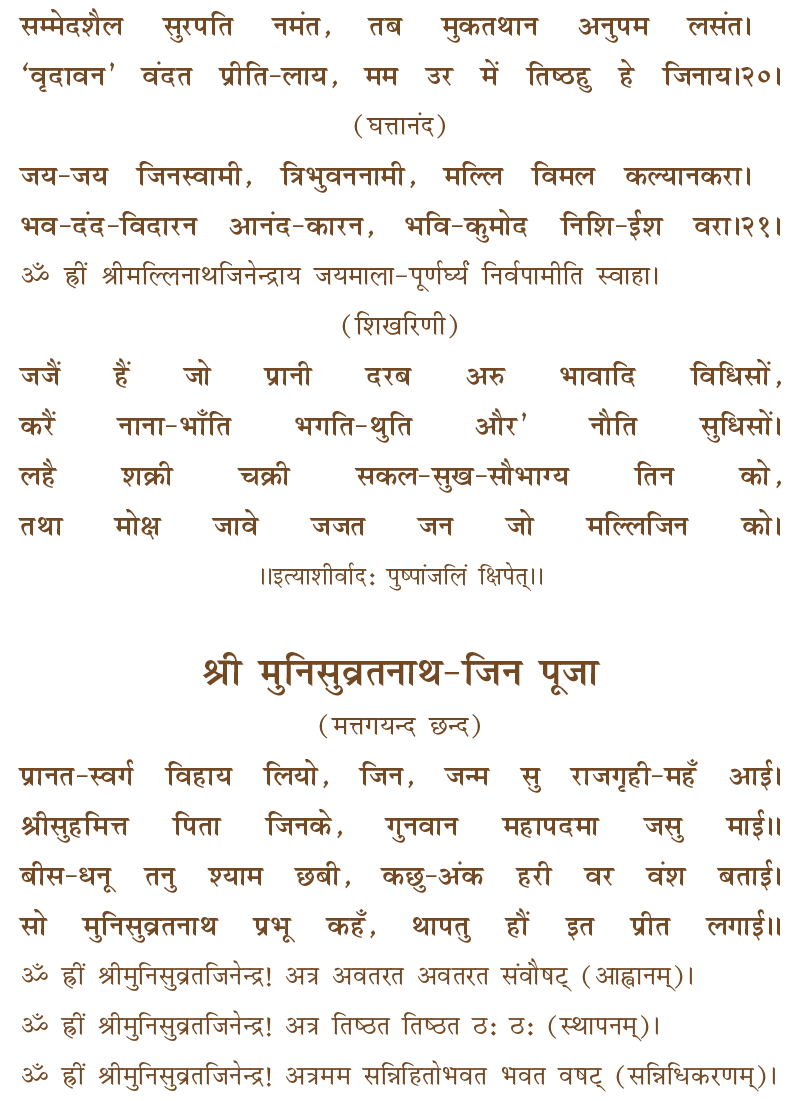 सम्मेदशैल सुरपति नमंत, तब मुकतथान अनुपम लसंत।
‘वृदावन’ वंदत प्रीति-लाय, मम उर में तिष्ठहु हे जिनाय।२०।
(घत्तानंद)
जय-जय जिनस्वामी, त्रिभुवननामी, मल्लि विमल कल्यानकरा।
भव-दंद-विदारन आनंद-कारन, भवि-कुमोद निशि-ईश वरा।२१।
ॐ ह्रीं श्रीमल्लिनाथजिनेन्द्राय जयमाला-पूर्णर्घ्यं निर्वपामीति स्वाहा।
(शिखरिणी)
जजैं हैं जो प्रानी दरब अरु भावादि विधिसों,
करैं नाना-भाँति भगति-थुति और’ नौति सुधिसों।
लहै शक्री चक्री सकल-सुख-सौभाग्य तिन को,
तथा मोक्ष जावे जजत जन जो मल्लिजिन को।
।।इत्याशीर्वाद: पुष्पांजलिं क्षिपेत्।।
श्री मुनिसुव्रतनाथ-जिन पूजा
(मत्तगयन्द छन्द)
प्रानत-स्वर्ग विहाय लियो, जिन, जन्म सु राजगृही-महँ आई।
श्रीसुहमित्त पिता जिनके, गुनवान महापदमा जसु माई।।
बीस-धनू तनु श्याम छबी, कछु-अंक हरी वर वंश बताई।
सो मुनिसुव्रतनाथ प्रभू कहँ, थापतु हौं इत प्रीत लगाई।।
ॐ ह्रीं श्रीमुनिसुव्रतजिनेन्द्र! अत्र अवतरत अवतरत संवौषट् (आह्वानम्)।
ॐ ह्रीं श्रीमुनिसुव्रतजिनेन्द्र! अत्र तिष्ठत तिष्ठत ठ: ठ: (स्थापनम्)।
ॐ ह्रीं श्रीमुनिसुव्रतजिनेन्द्र! अत्रमम सन्निहितोभवत भवत वषट् (सन्निधिकरणम्)।